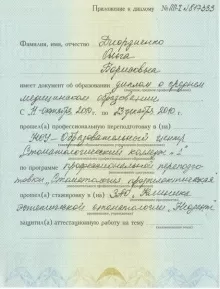 Приложение к диплому № ПП-I №
Фамилия, имя, отчество
Ольга
Борисовна
имеет документ об образовании диплом о среднем
медицинском образовании
с 11 октября 2010 г. по 23 декабря 2010 г.
прошел(а) профессиональную переподготовку в (на)
Образовательный центр
"Стоматологический колледж-2"
по программе профессиональной переподго
товки "Стоматология профилактическая
прошел(а) стажировку в (на) ЗАО "Клиника
эстетической стоматологии
защитил(а) аттестационную работу на тему